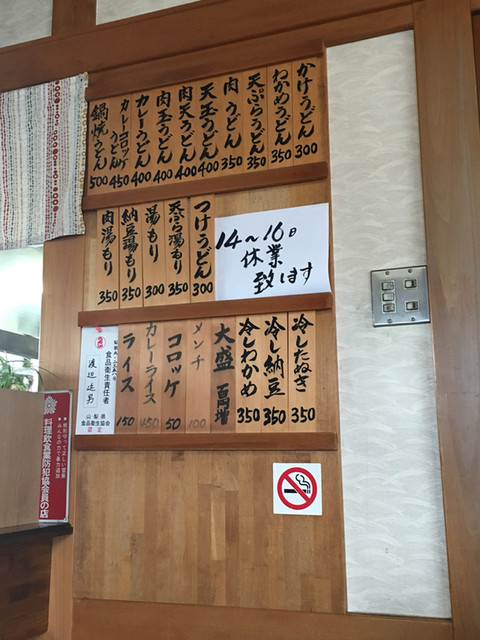 かけうどん 300
わかめうどん 350
天ぷらうどん 350
肉うどん 350
天玉うどん 400
肉天うどん 400
肉玉うどん 400
カレーうどん 400
カレーコロッケうどん 450
鍋焼うどん 500
つけうどん 300
天ぷら湯もり 350
湯もり 300
納豆湯もり 350
肉湯もり 350
14〜16日
休業
致します
冷したぬき 350
冷し納豆 350
冷しわかめ 350
大盛 百円増
メンチ 100
コロッケ 50
カレーライス 450
ライス 150
食品衛生責任者
渡辺延男
山梨県
食品衛生協会
認定
料理飲食業防犯協会会員の店